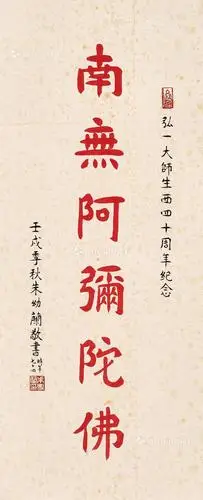 弘一大師生西四十周年纪念
南無阿彌陀佛
壬戌季秋朱幼蘭敬書時年七十四